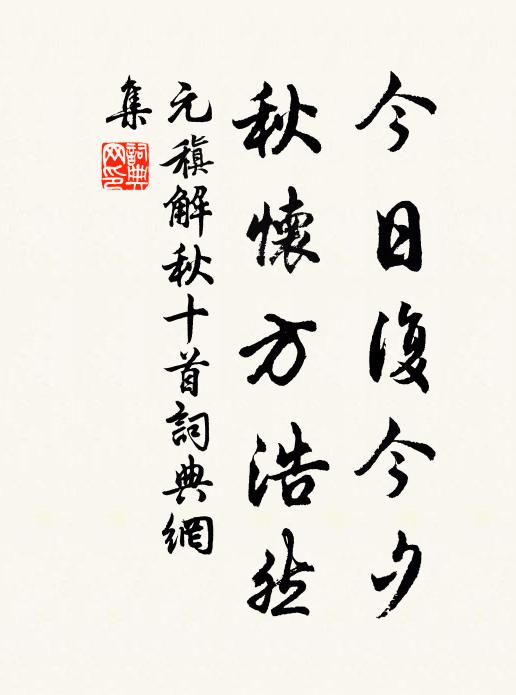 今日復今夕
秋懷方浩然
元稹解秋十首詞典網
集
詞典网印